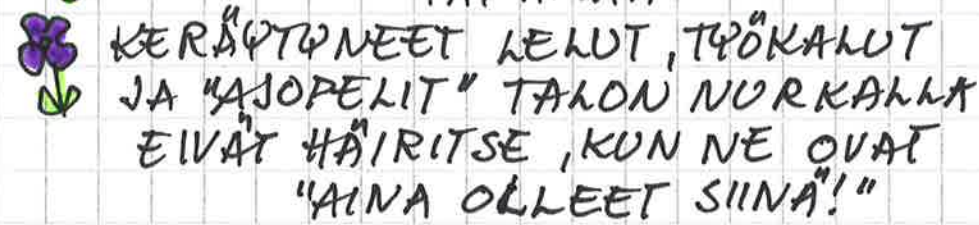 KERÄYTYNEET LELUT, TYÖKALUT
JA "AJOPELIT" TALON NURKALLA
EIVÄT HÄIRITSE, KUN NE OVAT
"AINA OLLEET SIINÄ!"